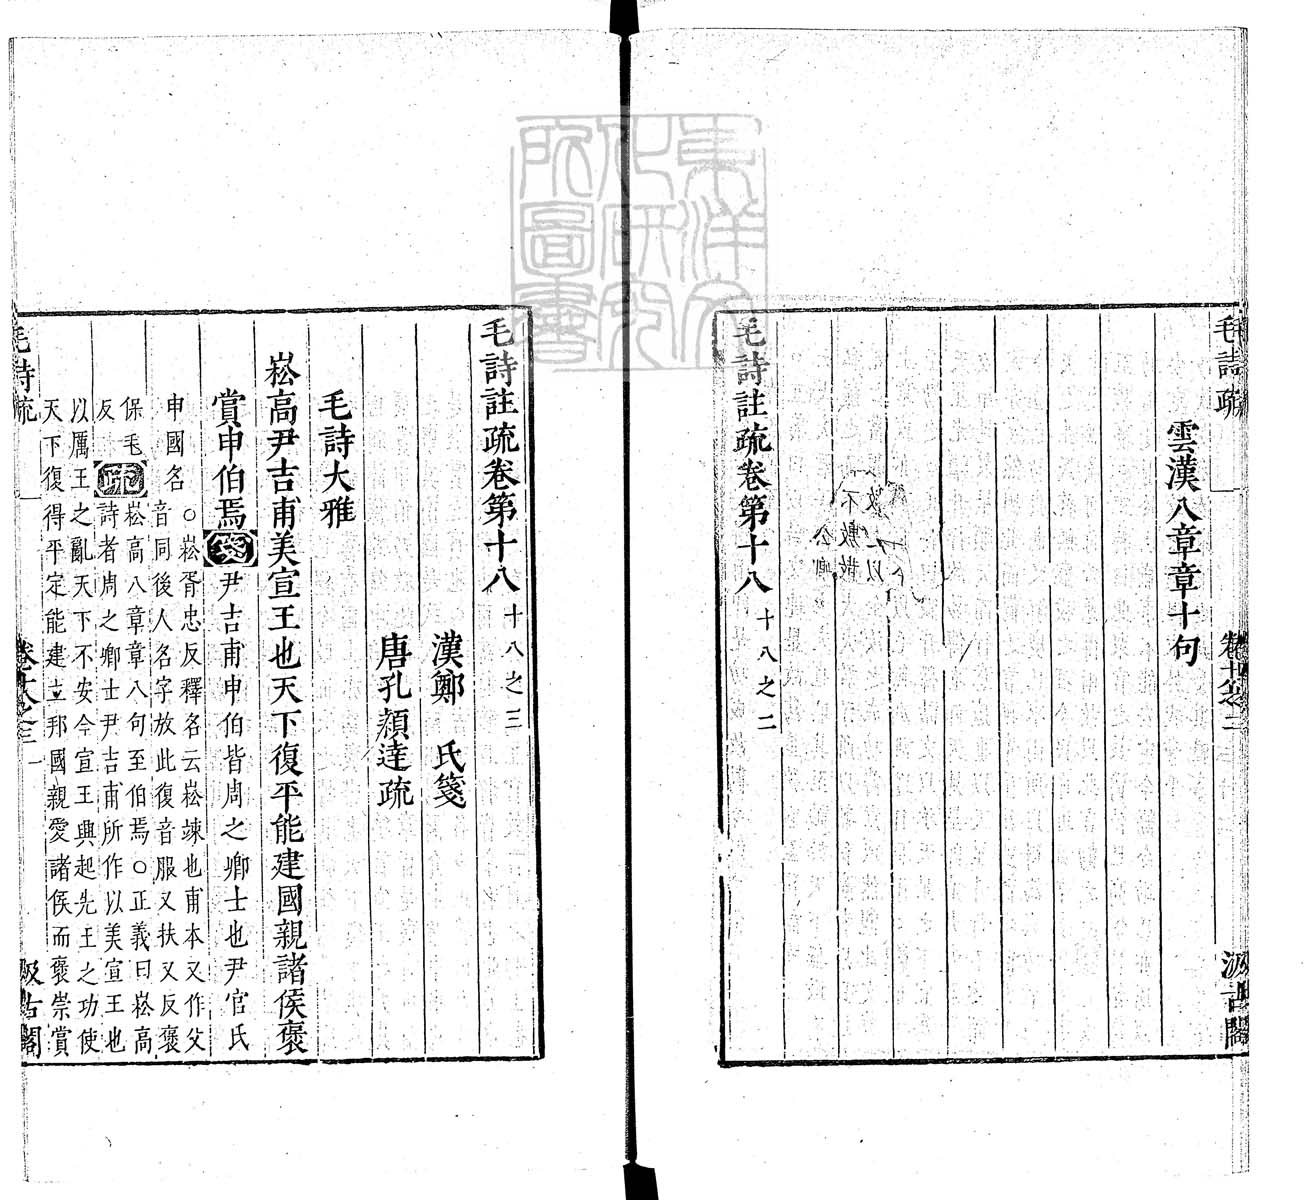 毛詩疏
卷十八之二
汲古閣
雲漢八章章十句
毛詩註疏卷第十八 十八之二
東洋文化研究所圖書
毛詩註疏卷第十八 十八之三
漢鄭 氏箋
唐孔穎達疏
毛詩大雅
崧高尹吉甫美宣王也天下復平能建國親諸侯褒
賞申伯焉箋尹吉甫申伯皆周之卿士也尹官氏
申國名○崧胥忠反釋名云崧竦也甫本又作父
音同後人名字放此復音服又扶又反褒
保毛
反疏崧高八章章八句至伯焉○正義曰崧高
詩者周之卿士尹吉甫所作以美宣王也
以厲王之亂天下不安今宣王興起先王之功使
天下復得平定能建立邦國親愛諸侯而褒崇賞
毛詩疏
卷十八之三
一
汲古閣